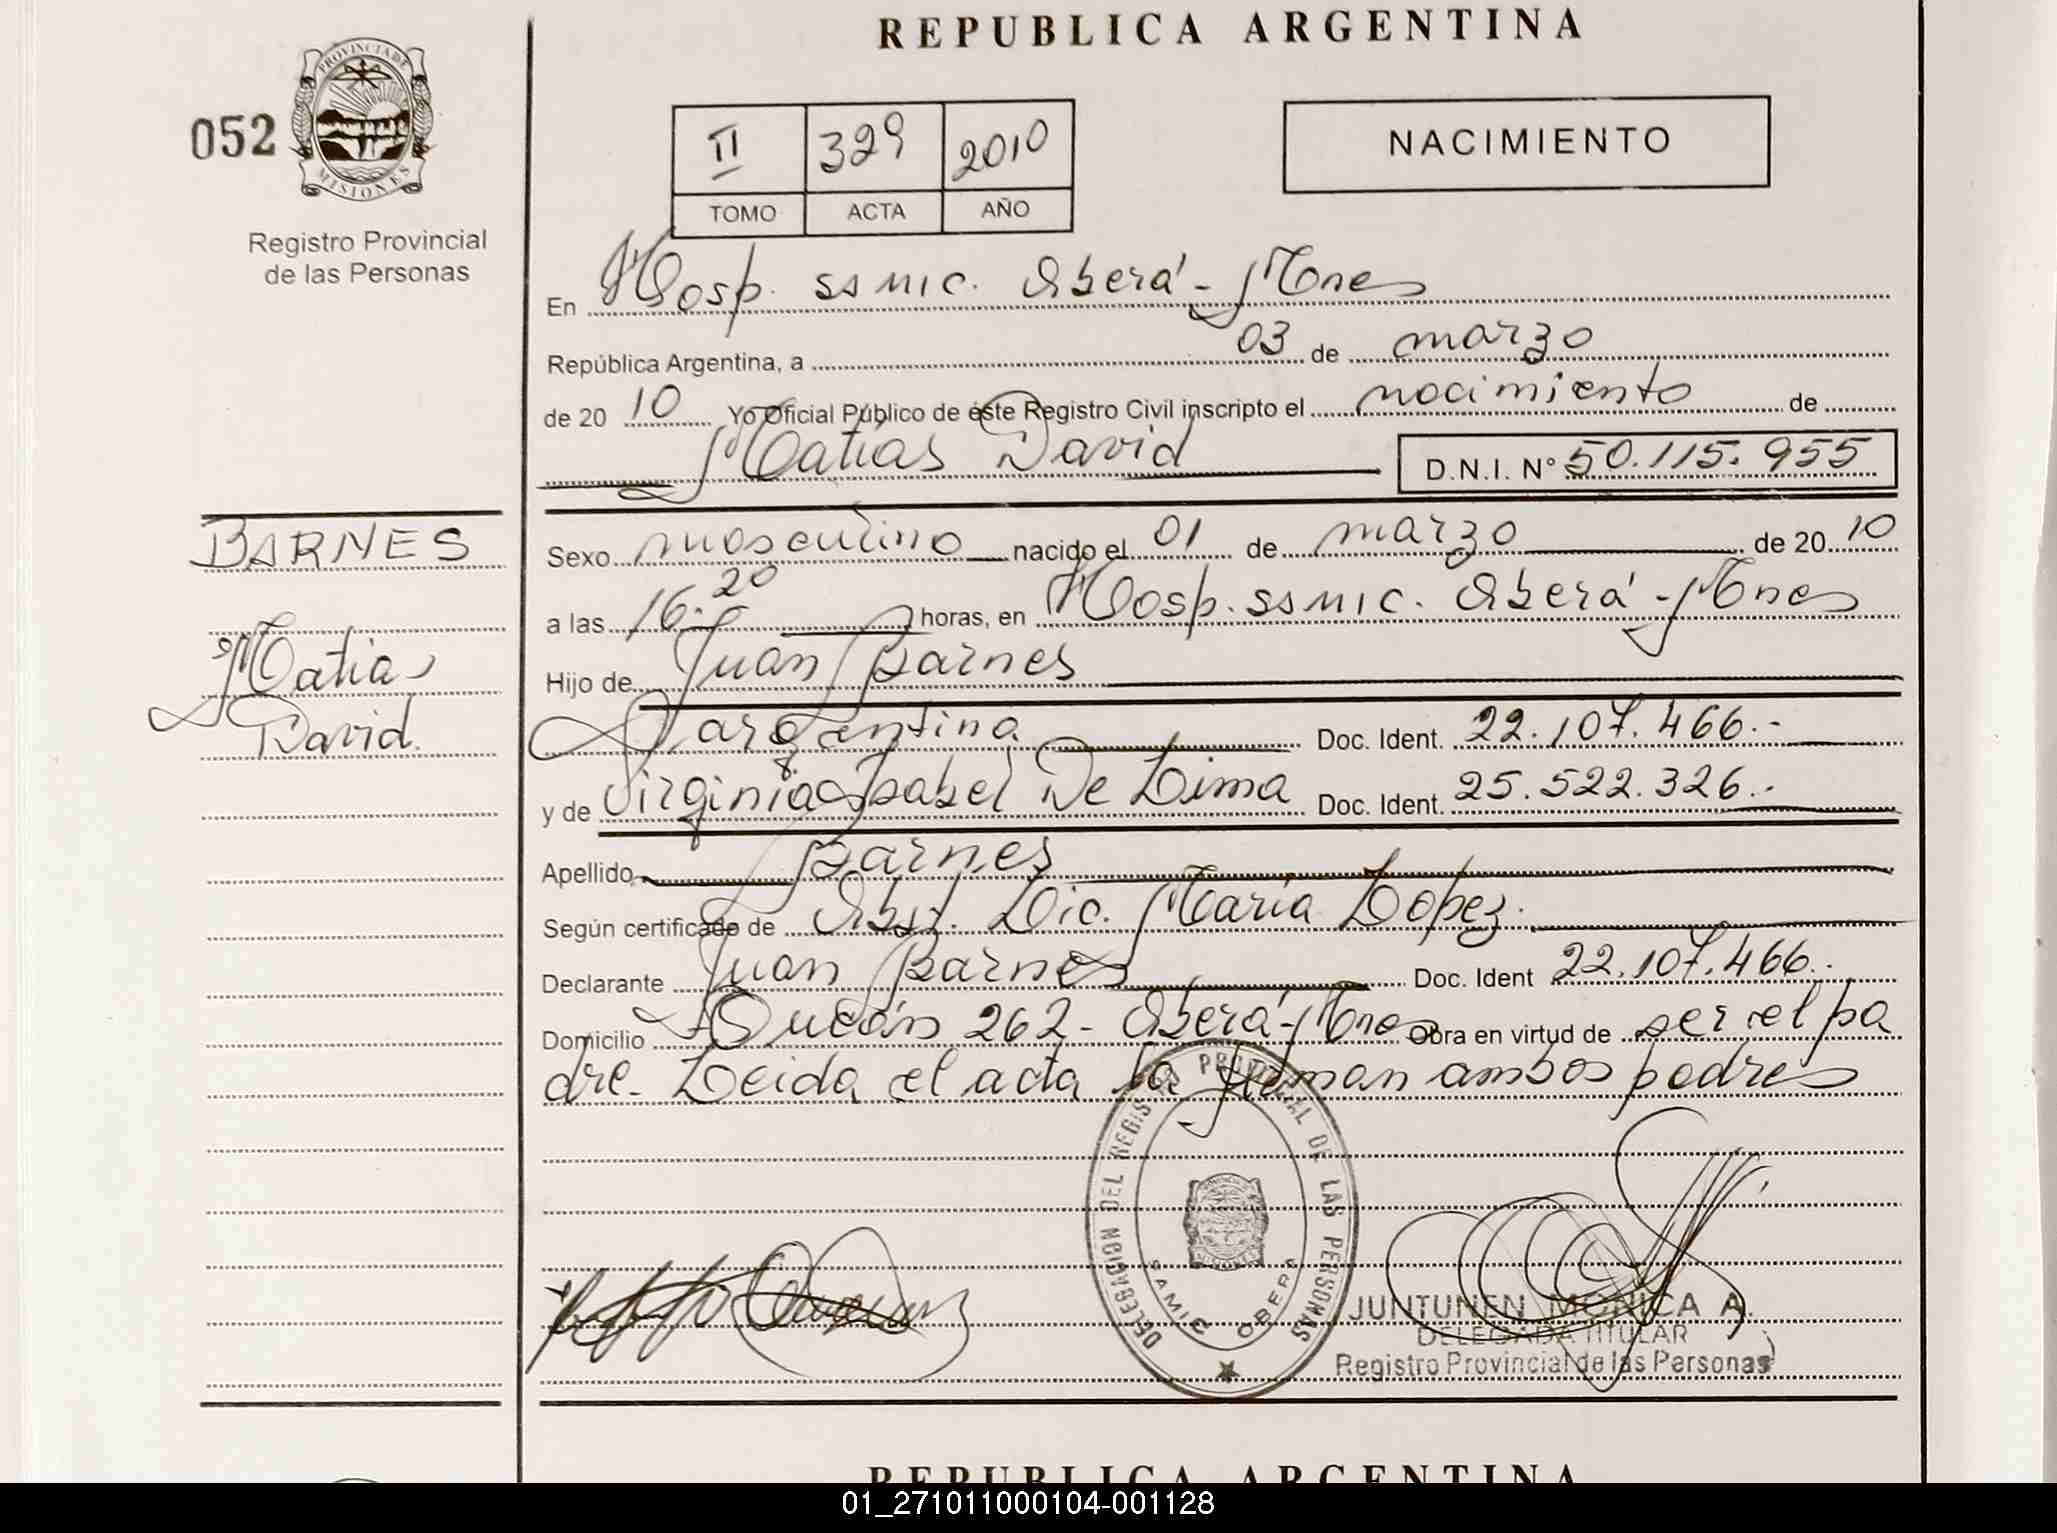 REPUBLICA ARGENTINA
052
PROVINCIA DE
MISIONES
Registro Provincial
de las Personas
II 329 2010
TOMO ACTA AÑO
NACIMIENTO
En Hosp. SAMIC. Oberá - Mnes
República Argentina, a 03 de marzo
de 20 10 Yo Oficial Público de éste Registro Civil inscripto el nacimiento de
Matías David D.N.I. Nº 50.115.955
BARNES
Matías
David.
Sexo masculino nacido el 01 de marzo de 20 10
a las 16.20 horas, en Hosp. SAMIC. Oberá - Mnes
Hijo de Juan Barnes
argentina Doc. Ident. 22.107.466.-
y de Virginia Isabel De Lima Doc. Ident. 25.522.326.-
Apellido Barnes
Según certificado de Obst. Lic. María Lopez.
Declarante Juan Barnes Doc. Ident 22.107.466.
Domicilio 262 - Oberá - Mnes Obra en virtud de ser el pa
dre. Leida el acta la firman ambos padres
DELEGACIÓN DEL REGISTRO PROVINCIAL DE LAS PERSONAS
SAMIC OBERA
JUNTUNEN MONICA A.
DELEGADA TITULAR
Registro Provincial de las Personas
REPUBLICA ARGENTINA
01_271011000104-001128